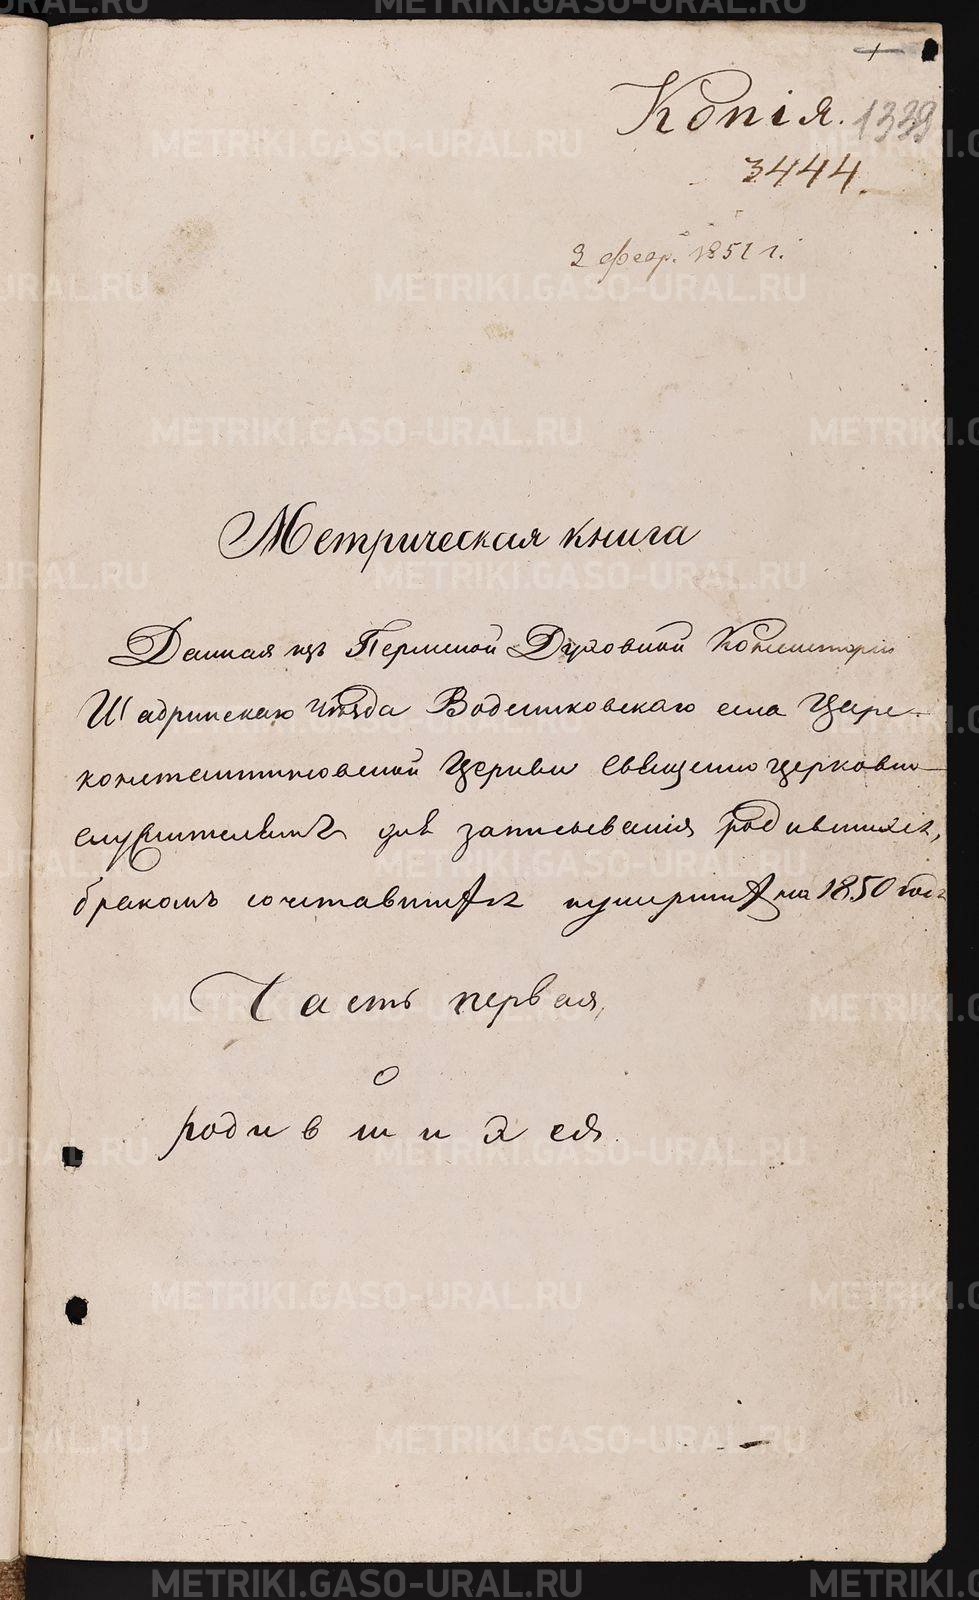 Копія. 1339
3444.
2 февр. 1851 г.
Метрическая книга
Данная изъ Пермской Духовной Консисторіи
Шадринскаго уѣзда Водениковскаго села Царе-
константиновской Церкви священно церковно-
служителямъ для записыванія родившихся,
бракомъ сочетавшихся и умершихъ на 1850 годъ
Часть первая,
о
родившихся.
METRIKI.GASO-URAL.RU